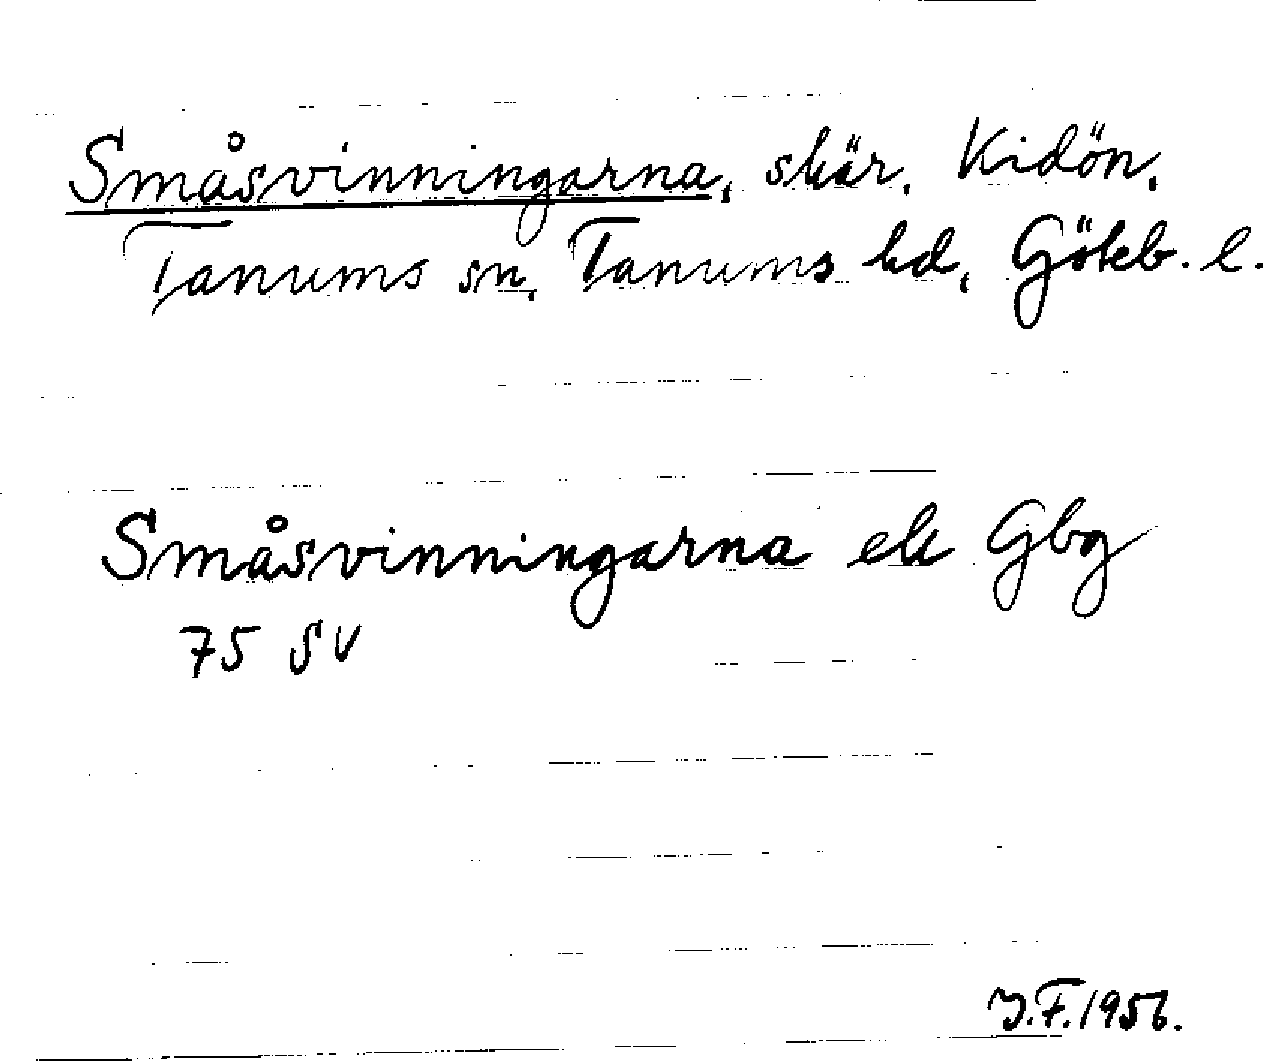 Småsvinningarna, skär. Kidön.
Tanums sn, Tanums hd, Göteb. l.
Småsvinningarna ek Gbg
75 SV
J.F. 1956.